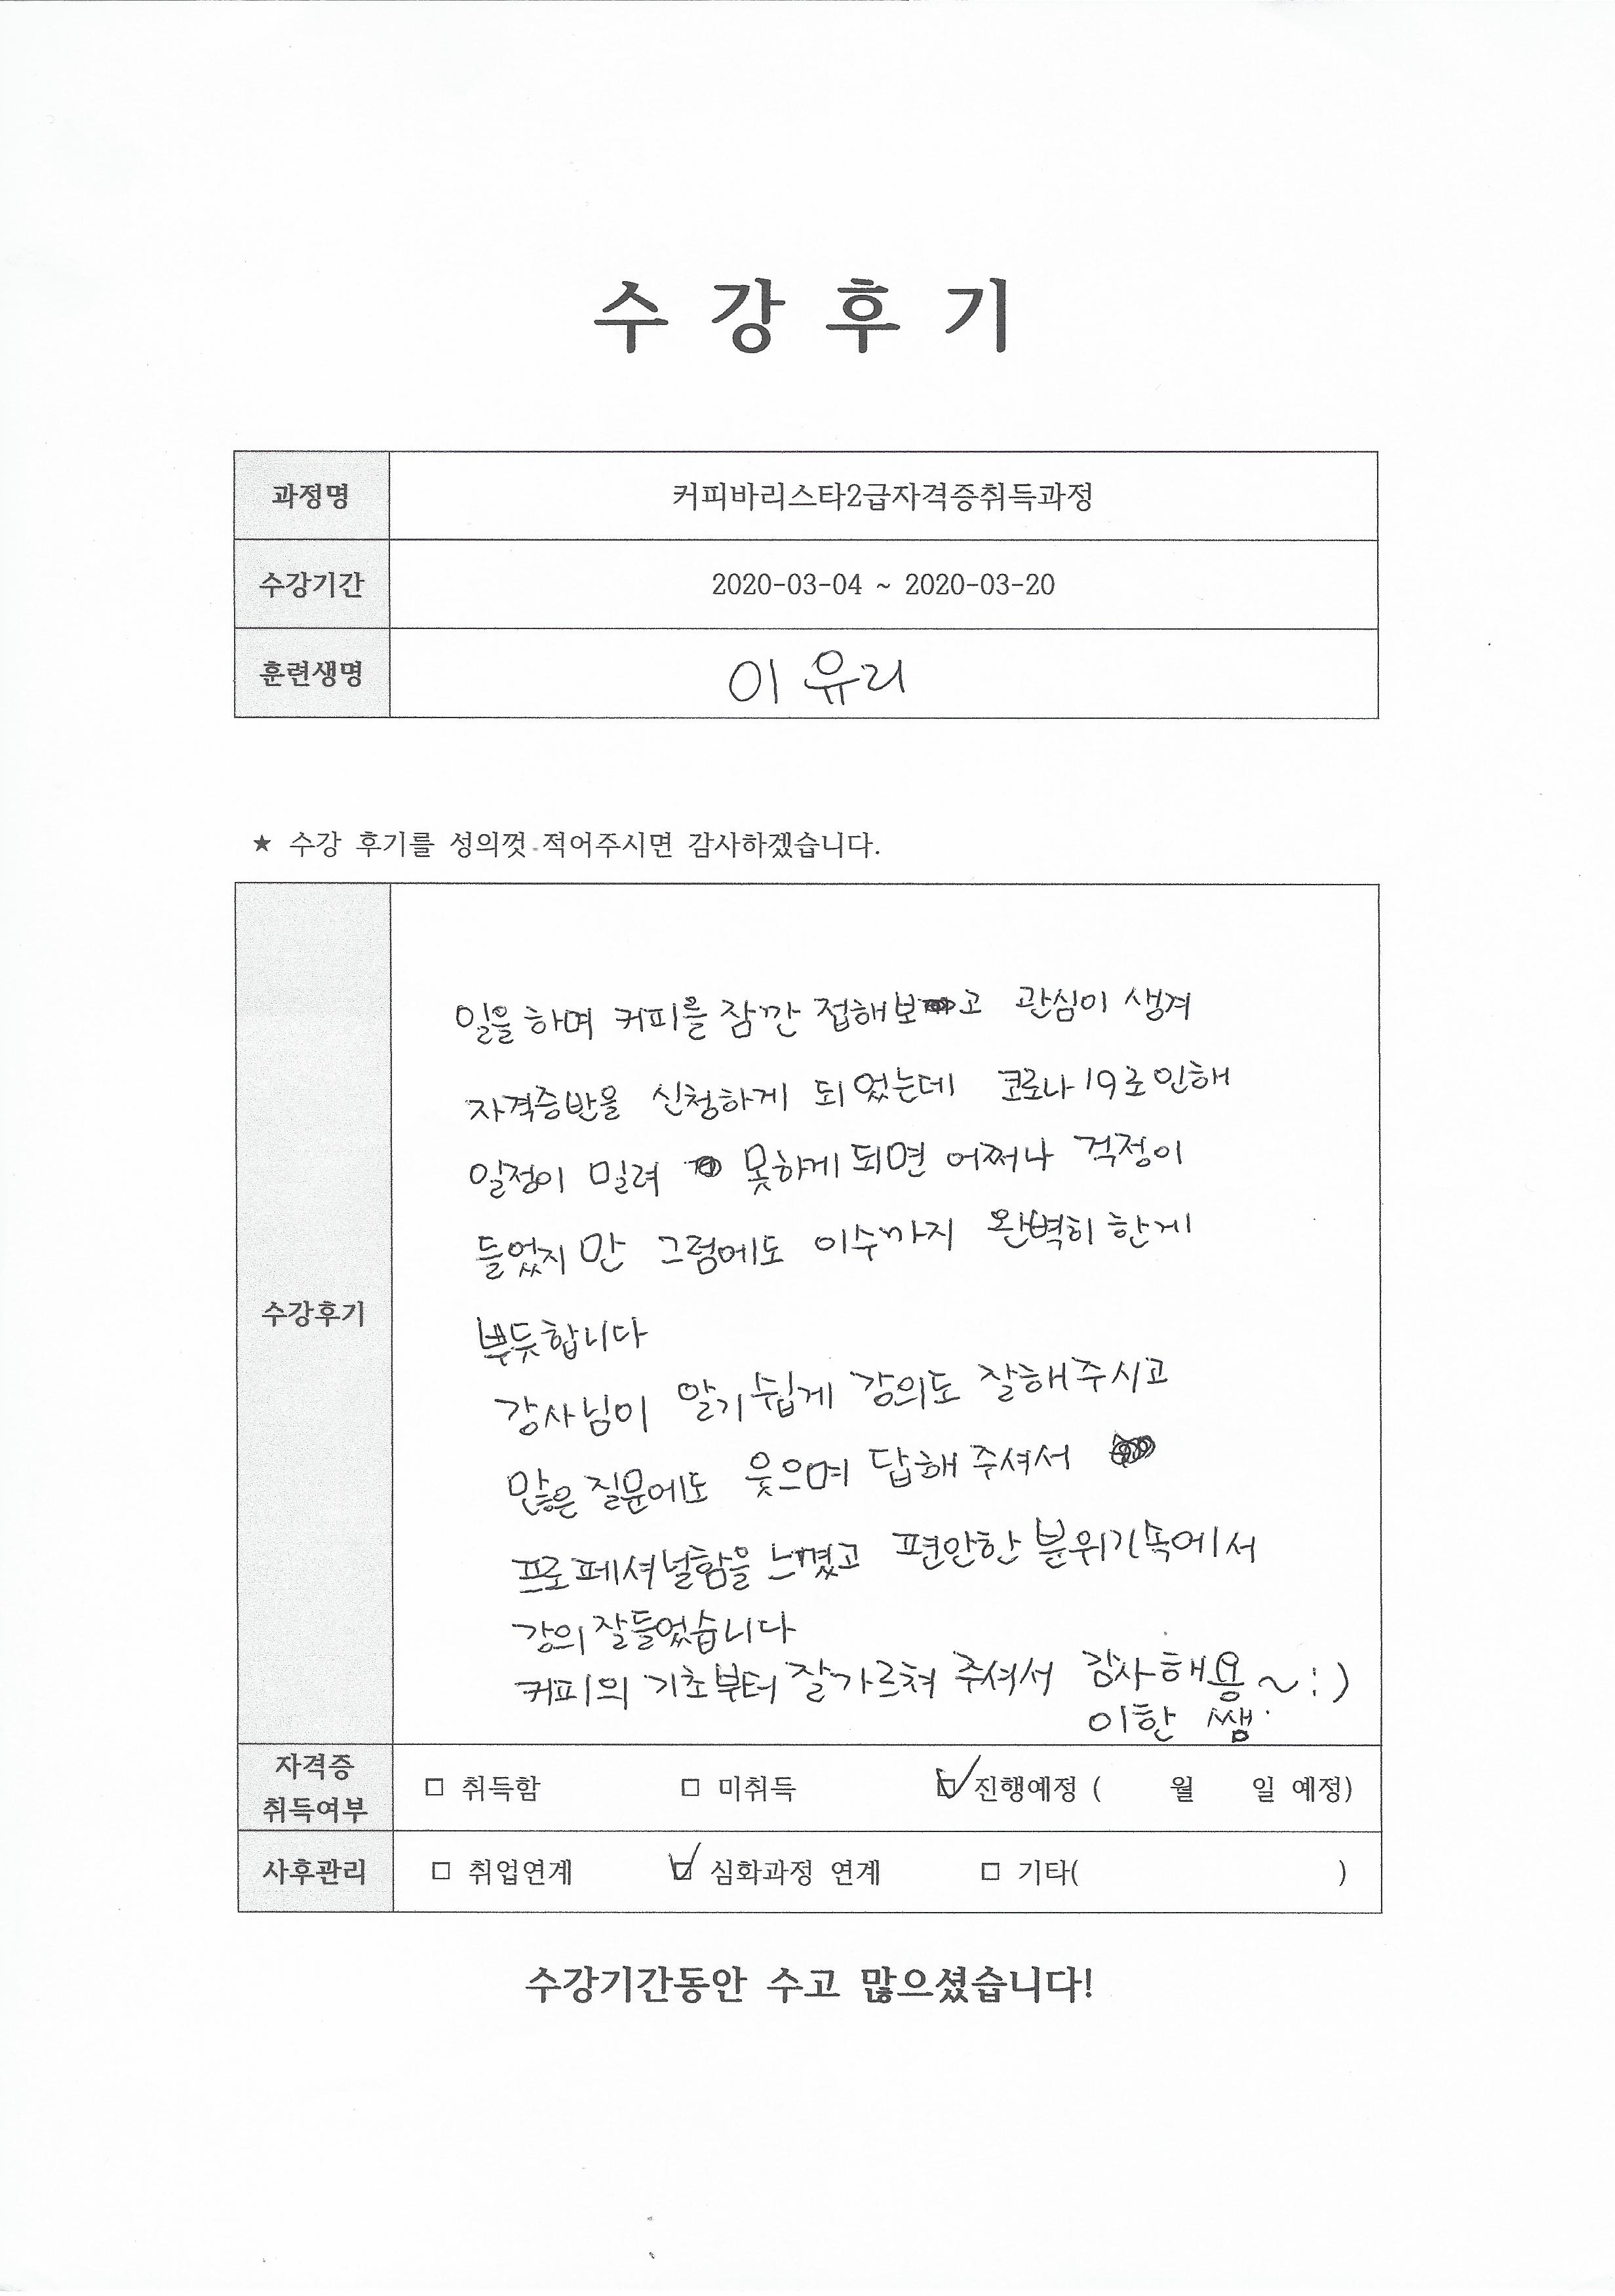 수 강 후 기
과정명 커피바리스타2급자격증취득과정
수강기간 2020-03-04 ~ 2020-03-20
훈련생명 이유리
★ 수강 후기를 성의껏 적어주시면 감사하겠습니다.
수강후기
일을 하며 커피를 잠깐 접해보고 관심이 생겨
자격증반을 신청하게 되었는데 코로나19로 인해
일정이 밀려 못하게 되면 어쩌나 걱정이
들었지만 그럼에도 이수까지 완벽히 한게
뿌듯합니다
강사님이 알기쉽게 강의도 잘해주시고
많은 질문에도 웃으며 답해 주셔서
프로페셔널함을 느꼈고 편안한 분위기속에서
강의 잘들었습니다
커피의 기초부터 잘가르쳐 주셔서 감사해용~:)
이한 쌤
자격증 취득여부 □ 취득함 □ 미취득 ☑ 진행예정 ( 월 일 예정)
사후관리 □ 취업연계 ☑ 심화과정 연계 □ 기타( )
수강기간동안 수고 많으셨습니다!